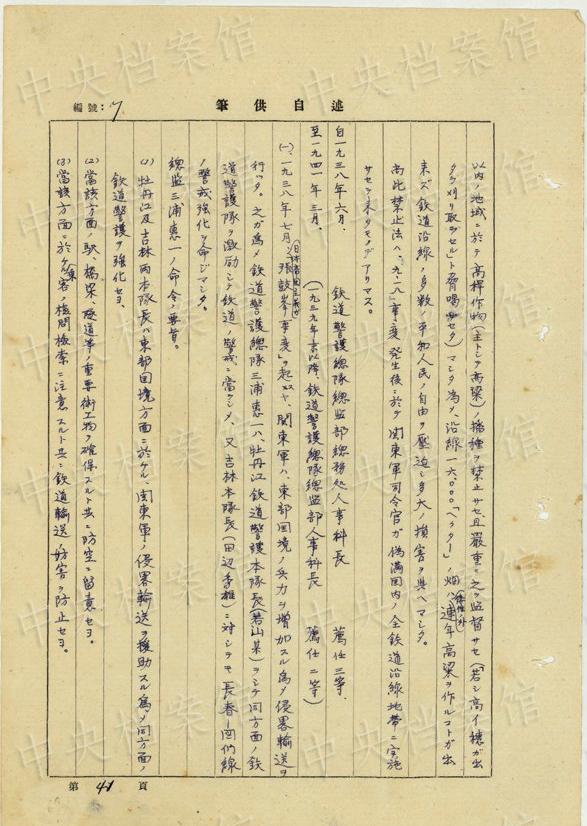 中央档案馆
述自供筆
編號：7
以内ノ地域ニ於テ高桿作物（主トシテ高粱）ノ播種ヲ禁止サセ且嚴重ニ之ヲ監督サセ（若シ高イ穂ガ出
タラ刈リ取ラセル」ト脅喝サセタ）マシタ為メ、沿線一六、〇〇〇「ヘクター」ノ畑ハ連年高粱ヲ作ルコトガ出
来ズ鉄道沿線ノ多数ノ平和人民ノ自由ヲ壓迫シ多大ノ損害ヲ與ヘマシタ。
尚此禁止法ハ「九・一八」事変發生後ニ於テ関東軍司令官ガ偽満国内ノ全鉄道沿線地帯ニ実施
サセテ来タモノデアリマス。
自一九三八年六月、
至一九四一年三月、
鉄道警護總隊總監部總務処人事科長　薦任三等、
（一九三九年末以降、鉄道警護總隊總監部人事科長　薦任二等）
(一)、一九三八年七月、（日本帝国主義ガ）「張鼓峯事変」ヲ起スヤ、関東軍ハ、東部国境ノ兵力ヲ増加スル為メ侵畧輸送ヲ
行ッタ。之ガ為メ鉄道警護總隊三浦惠一ハ、牡丹江鉄道警護本隊長（若山某）ヲシテ同方面ノ鉄
道警護隊ヲ激励シテ鉄道ノ警戒ニ當ラシメ、又吉林本隊長（田辺秀雄）ニ対シテモ長春ー図們線
ノ警戒強化ヲ命ジマシタ。
總監三浦惠一ノ命令ノ要旨。
(1) 牡丹江及吉林両本隊長ハ東部国境方面ニ於ケル、関東軍ノ侵畧輸送ヲ援助スル為メ同方面ノ
鉄道警護ヲ強化セヨ。
(2) 當該方面ノ駅、橋梁、隧道等ノ重要術工物ヲ確保スルト共ニ防空ニ留意セヨ。
(3) 當該方面ニ於ケル乗客ノ検問検索ニ注意スルト共ニ鉄道輸送ノ妨害ヲ防止セヨ。
第 41 頁